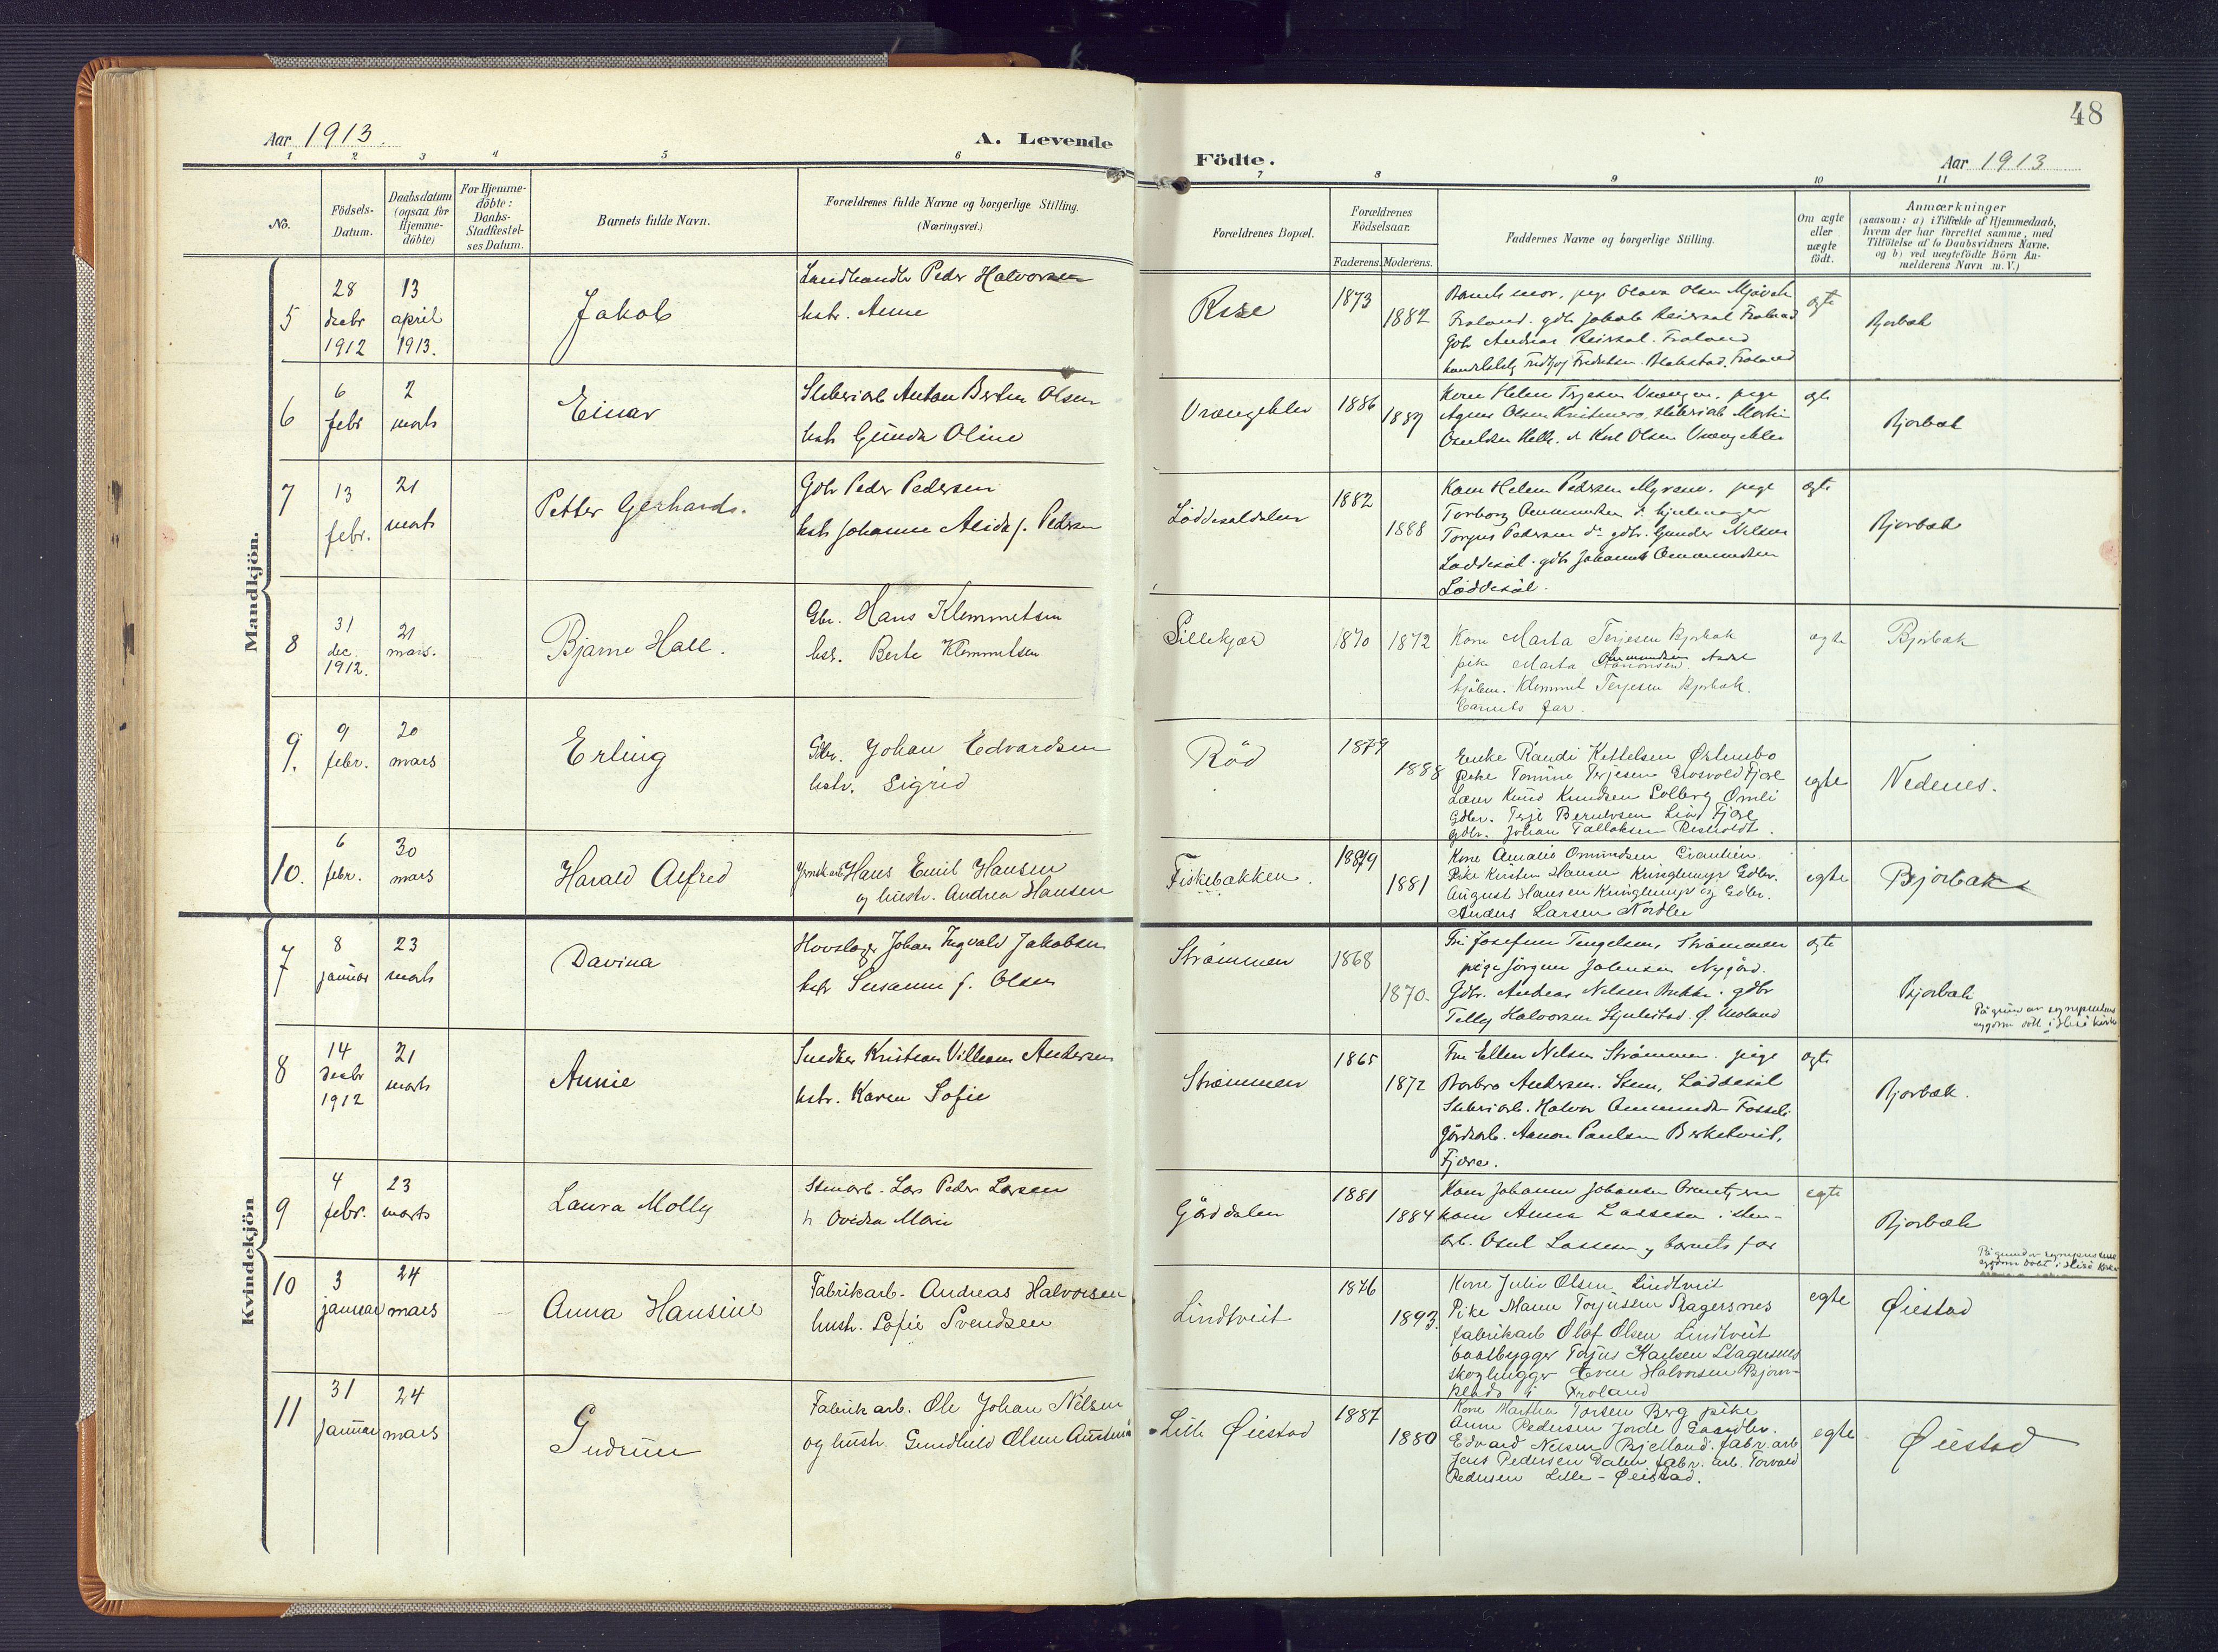 48
Aar 1913.
A. Levende
Födte.
Aar 1913
1 2 3 4 5 6 7 8 9 10 11
No.
Födsels-
Datum.
Daabsdatum
(ogsaa for
Hjemme-
döbte)
For Hjemme-
döbte:
Daabs-
Stadfæstel-
ses Datum.
Barnets fulde Navn.
Forældrenes fulde Navne og borgerlige Stilling.
(Næringsvei.)
Forældrenes Bopæl.
Forældrenes
Födselsaar.
Faderens. Moderens.
Faddernes Navne og borgerlige Stilling.
Om ægte
eller
uægte
födt.
Anmærkninger
(saasom: a) i Tilfælde af Hjemmedaab,
hvem der har forrettet samme, med
Tilföielse af to Daabsvidners Navne.
og b) ved uægtefödte Börn An-
melderens Navn m. V.)
Mandkjön.
5
28
decbr
1912
13
april
1913.
Jakob
Landhandler Peder Halvorsen
hstr. Anne
Rise
1873
1882
Froland. gdb Jakob Reiersøl Froland
Gdb Andreas Reiersøl. Froland
ægte
Bjorbæk
6
6
febr
2
marts
Einar
Sliberiarb Anton Bertin Olsen
hstr Gunda Oline
1886
1889
ægte
Bjorbæk
7
13
febr.
21
marts
Petter Gerhards.
Gdb Peder Pedersen
hstr Johanne Alida f. Pedersen
Løddesøldalen
1882
1888
Kone Helene Pedersen Myrene. pige
Torborg Ommundsen
Torjus Pedersen do gdbr. Gunder Nilsen
Løddesøl. gdb Johannes Ommundsen
Løddesøl.
ægte
Bjorbæk
8
31
dec.
1912.
21
mars.
Bjarne Hall.
Gbr. Hans Klemmetsen
hstr. Berte Klemmetsen
Sillekjær
1870
1872
Kone Marta Terjesen Bjorbæk
pike Marta Ommundsen
Klemmet Terjesen Bjorbæk.
barnets far.
ægte
Bjorbæk
9.
9
febr.
20
mars
Erling
Gbr. Johan Edvardsen
hstr. Sigrid
Röd
1879
1888
Enke Randi Kettelsen Østensbo
Pike Tomine Terjesen Grosvold Fjære
Lærer Knud Knudsen Solberg Omli
Gdbr. Terje Berntsen Lind Fjære
gdbr. Johan Tallaksen Risholdt.
egte
Nedenes.
10.
6
febr.
30
mars
Harald Alfred
Hans Emil Hansen
og hustr. Andrea Hansen
Fiskebakken.
1879
1881
Kone Amalie Omundsen
Pike Kirsten Hansen Kringlemyr Gdbr.
August Hansen Kringlemyr og Gdbr.
Anders Larsen Nordbø
egte
Bjorbæk
Kvindekjön
7
8
januar
23
marts
Davina
Hovslager Johan Ingvald Jakobsen
hstr Susanne f. Olsen
Strømmen
1868
1870.
Fru Josefine Tengelsen, Strømmen
pige Jørgine Johnsen Nygård.
Gdbr. Andreas Nilsen gdbr
Telly Halvorsen Stjulestad. Ø. Moland
ægte
Bjorbæk
På grund av
sygdom døbt i Hisø kirke
8
14
decbr
1912
21
marts
Annie
Snedker Kristian Villiam Andersen
hstr. Karen Sofie
Strømmen
1865
1872
Fru Ellen Nilsen Strømmen. pige
Borbro Andersen. Stene, Løddesøl
Sliberiarb. Halvor Ommundsen Fosseli
gårdsarb. Aanon Paulsen Birketveit,
Fjære.
ægte
Bjorbæk.
9
4
febr.
23
marts
Laura Molly
Stenarb. Lars Peder Larsen
h Ovidia Marie
Gårddalen
1881
1884
Kone Johanne Johansen
kone Anna Lassesen sten-
arb. Osul Lassesen og barnets far
egte
Bjorbæk
På grund av
sygdom døbt i Hisø kirke
10
3
januar
24
mars
Anna Hansine
Fabrikarb. Andreas Halvorsen
hustr. Sofie Svendsen
Lindtveit
1876
1893.
Kone Julie Olsen Lindtveit
Pike Marie Torjussen Stagersnes
fabrikarb Olaf Olsen Lindtveit
baatbygger Torjus Karlsen Stagersnes
skoghugger Even Halvorsen Bjorn-
plads i Froland
egte
Øiestad
11
31
januar
24
mars
Gudrun
Fabrik arb. Ole Johan Nilsen
og hustr. Gundhild Olsen Austenå
Lille Øiestad
1887
1880
Kone Martha Torsen Berg pike
Anne Pedersen Jorde Gaardbr.
Edvard Nilsen Bjelland. fabr. arb
Jens Pedersen Dalen fabr. arb. Torvald
Pedersen Lille-Øeistad.
egte
Øiestad